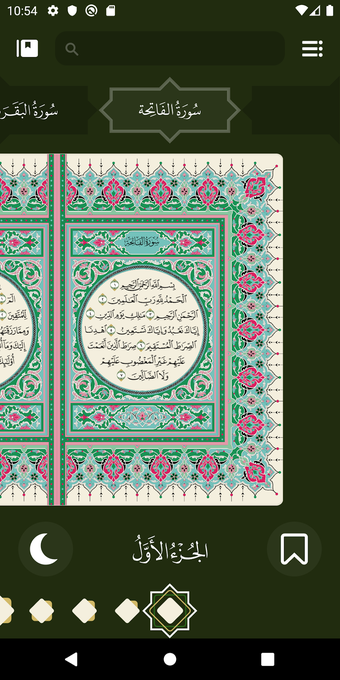 10:54
سُورَةُ الفَاتِحَة
سُورَةُ البَقَرَ
سُورَةُ الفَاتِحَة
بِسْمِ اللَّهِ الرَّحْمَٰنِ الرَّحِيمِ ١
الْحَمْدُ لِلَّهِ رَبِّ الْعَالَمِينَ ٢
الرَّحْمَٰنِ الرَّحِيمِ ٣ مَالِكِ يَوْمِ الدِّينِ ٤
إِيَّاكَ نَعْبُدُ وَإِيَّاكَ نَسْتَعِينُ ٥ اهْدِنَا
الصِّرَاطَ الْمُسْتَقِيمَ ٦ صِرَاطَ الَّذِينَ أَنْعَمْتَ
عَلَيْهِمْ غَيْرِ الْمَغْضُوبِ عَلَيْهِمْ
وَلَا الضَّالِّينَ ٧
الجُزْءُ الأَوَّلُ